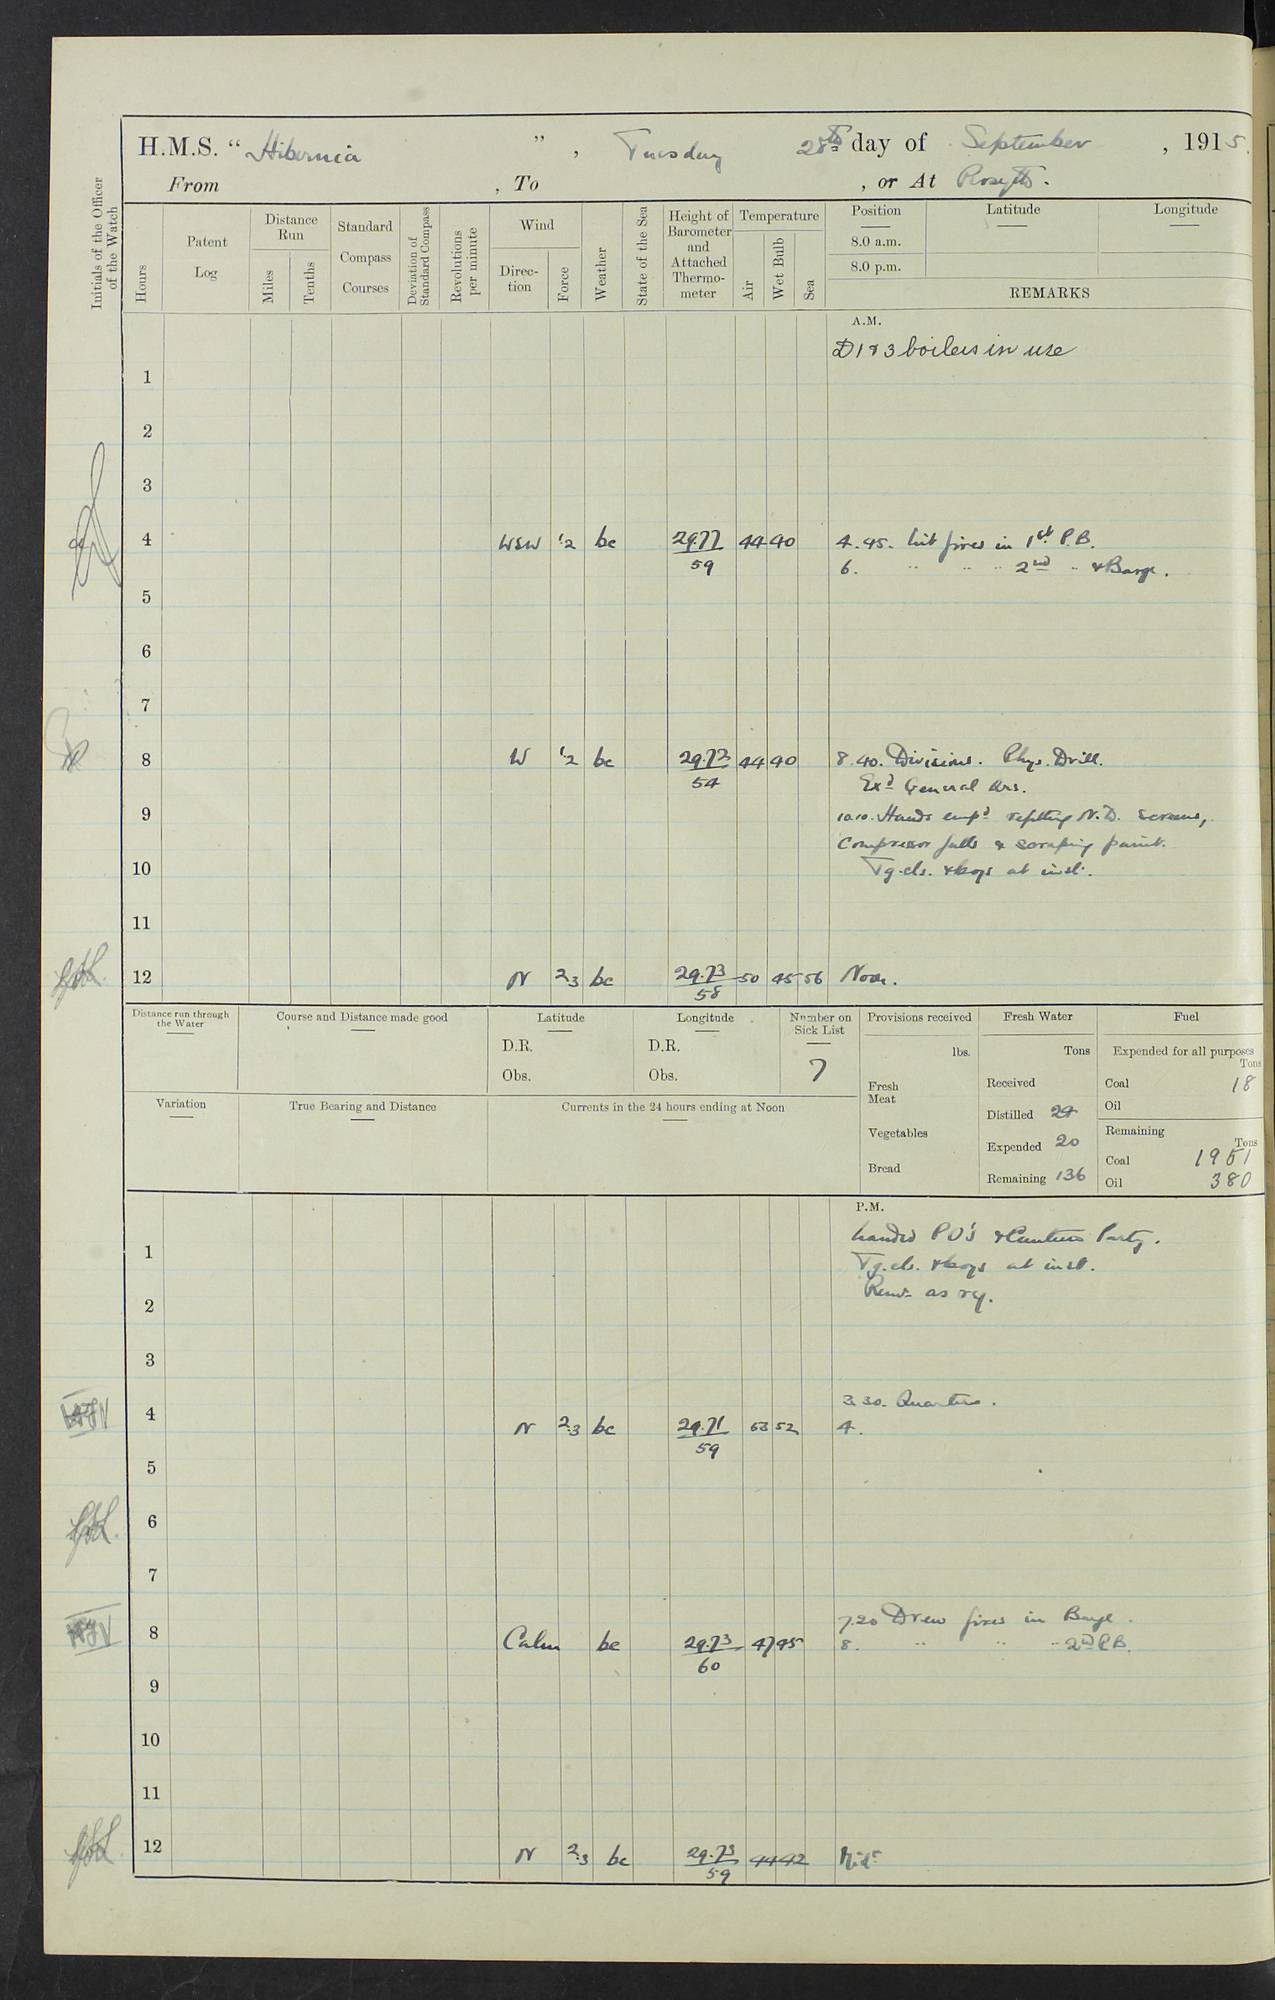 H.M.S. “Hibernia”, Tuesday 28th day of September, 1915.
From , To , or At Rosyth.
Initials of the Officer of the Watch
Hours
Patent Log
Distance Run
Miles
Tenths
Standard Compass Courses
Deviation of Standard Compass
Revolutions per minute
Wind
Direction
Force
Weather
State of the Sea
Height of Barometer and Attached Thermometer
Temperature
Air
Wet Bulb
Sea
Position
8.0 a.m.
8.0 p.m.
Latitude
Longitude
REMARKS
A.M.
D 1 & 3 boilers in use
1
2
3
4 WSW 1.2 bc 29.77/59 44 40 4.45. Lit fires in 1st P.B.
6. " " " 2nd " & Barge.
5
6
7
8 W 1.2 bc 29.72/54 44 40 8.40. Divisions. Phys. Drill.
Exd General Qrs.
9 10.10. Hands empd refitting N.D. screens,
Compressor falls & scraping paint.
10 Tg. cls. & boys at inst.
11
12 N 2.3 bc 29.73/58 50 45 56 Noon.
Distance run through the Water
Course and Distance made good
Latitude
D.R.
Obs.
Longitude
D.R.
Obs.
Number on Sick List
7
Provisions received
lbs.
Fresh Meat
Vegetables
Bread
Fresh Water
Tons
Received
Distilled 24
Expended 20
Remaining 136
Fuel
Expended for all purposes
Tons
Coal 18
Oil
Remaining
Tons
Coal 1951
Oil 380
Variation
True Bearing and Distance
Currents in the 24 hours ending at Noon
P.M.
Landed P.O's & Canteen Party.
1 Tg. cls. & boys at inst.
Remr as rq.
2
3
3.30. Quarters.
4 N 2.3 bc 29.71/59 53 52 4.
5
6
7
7.20 Drew fires in Barge.
8 Calm bc 29.73/60 47 45 8. " " " 2nd P.B.
9
10
11
12 N 2.3 bc 29.73/59 44 42 Midt